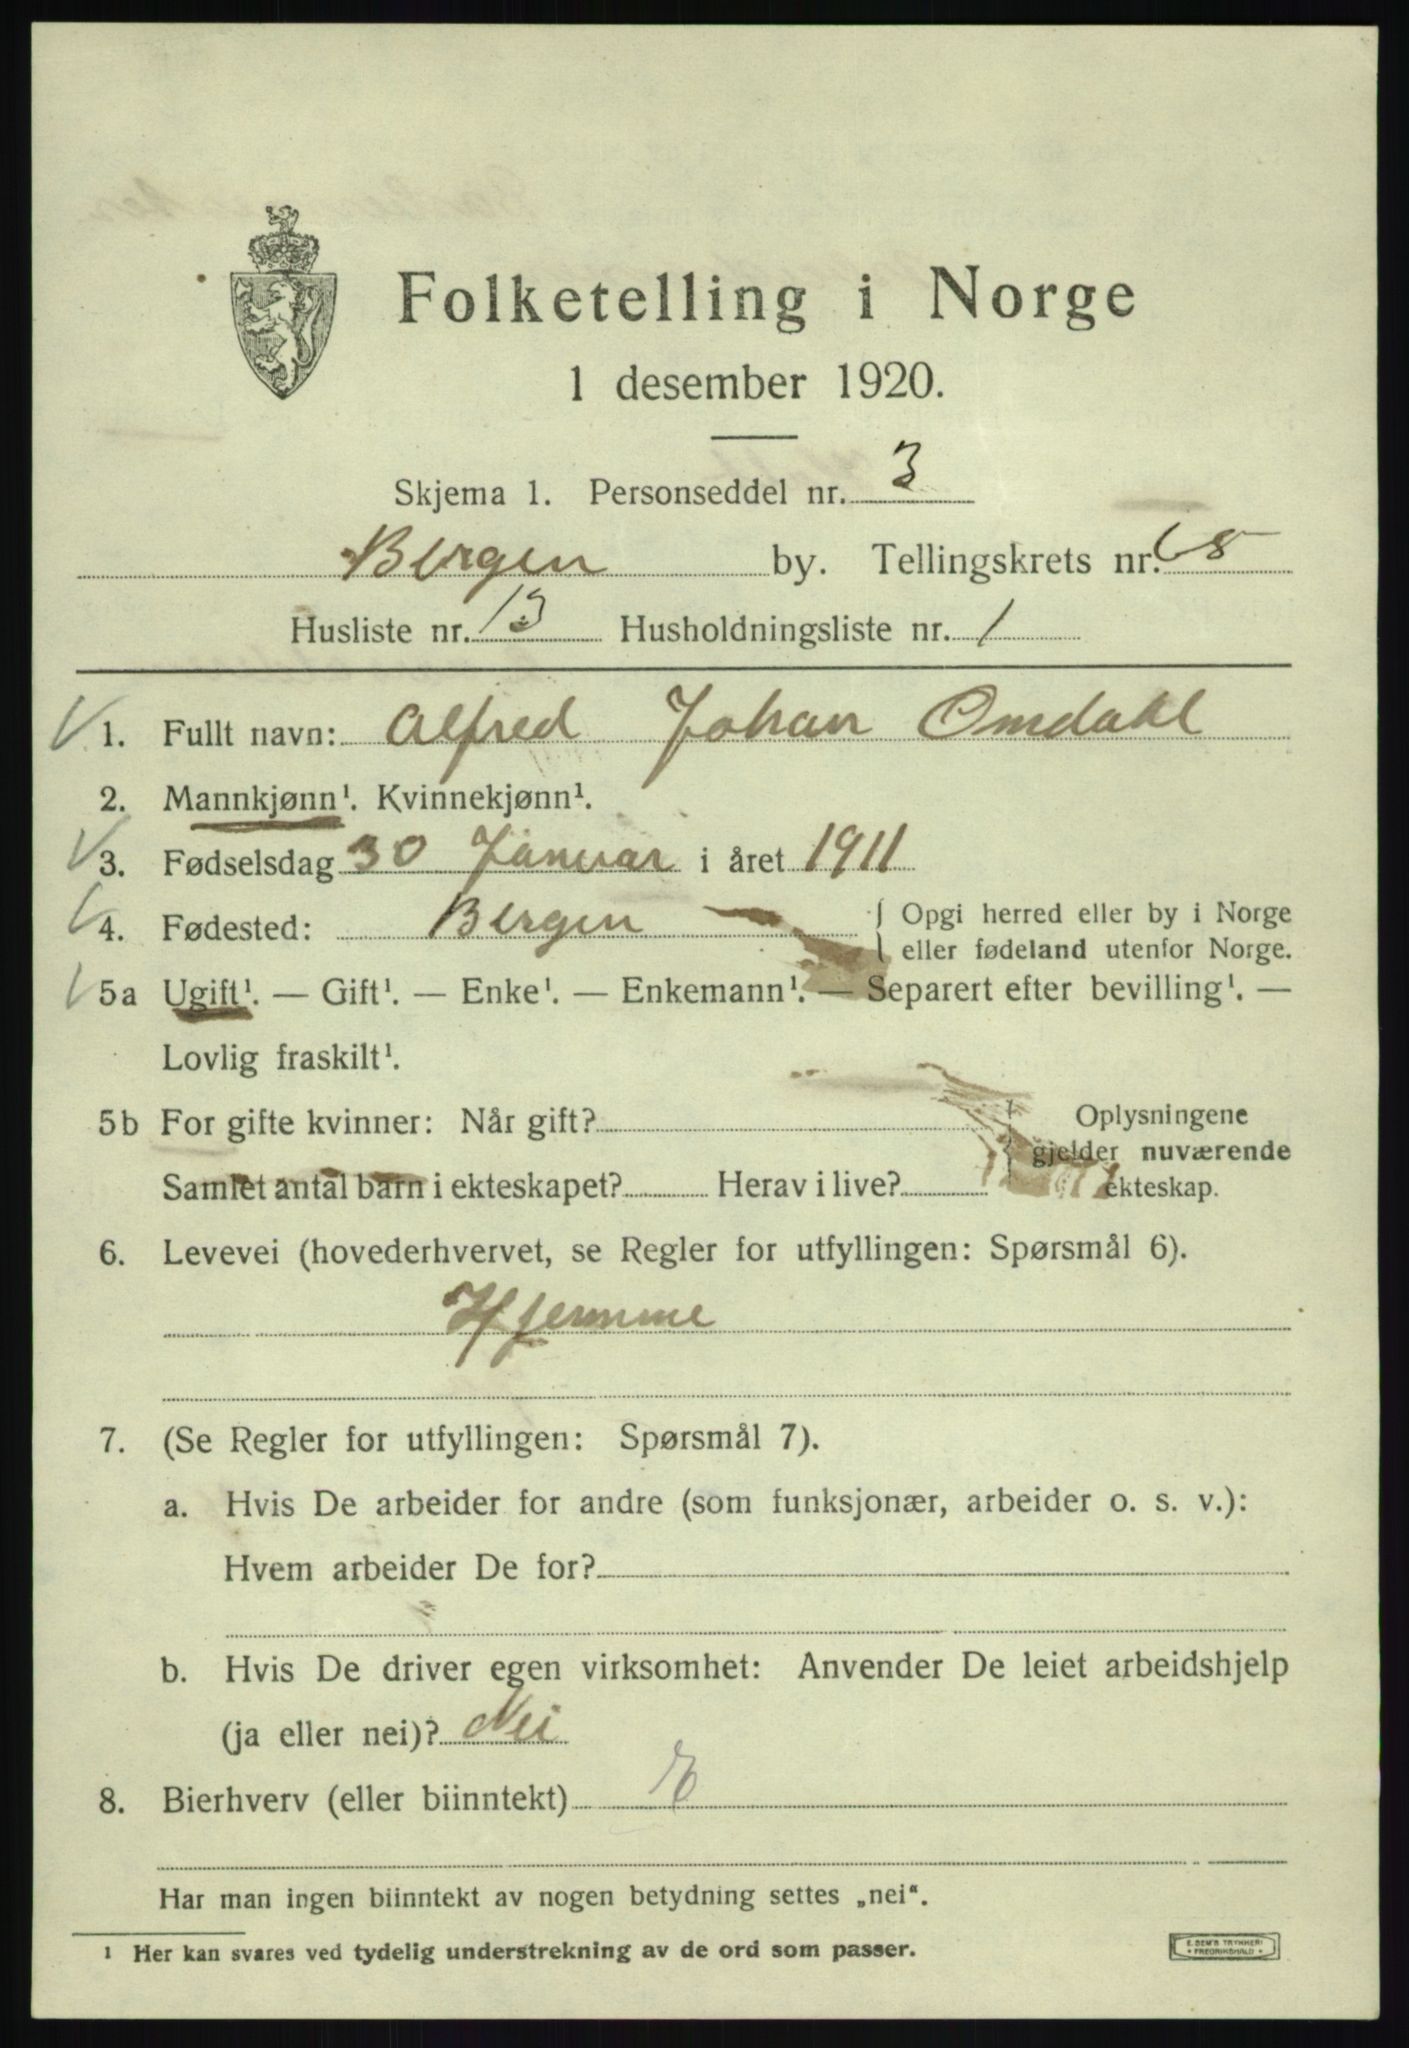 Folketelling i Norge
1 desember 1920.
Skjema 1. Personseddel nr. 3
Bergen by. Tellingskrets nr. 68
Husliste nr. 13 Husholdningsliste nr. 1
1. Fullt navn: Alfred Johan Omdahl
2. Mannkjønn¹. Kvinnekjønn¹.
3. Fødselsdag 30 Januar i året 1911
4. Fødested: Bergen { Opgi herred eller by i Norge
eller fødeland utenfor Norge.
5a Ugift¹. — Gift¹. — Enke¹. — Enkemann¹. — Separert efter bevilling¹. —
Lovlig fraskilt¹.
5b For gifte kvinner: Når gift? Oplysningene
gjelder nuværende
Samlet antal barn i ekteskapet? Herav i live? ekteskap.
6. Levevei (hovederhvervet, se Regler for utfyllingen: Spørsmål 6).
Hjemme
7. (Se Regler for utfyllingen: Spørsmål 7).
a. Hvis De arbeider for andre (som funksjonær, arbeider o. s. v.):
Hvem arbeider De for?
b. Hvis De driver egen virksomhet: Anvender De leiet arbeidshjelp
(ja eller nei)? Nei
8. Bierhverv (eller biinntekt)
Har man ingen biinntekt av nogen betydning settes „nei“.
¹ Her kan svares ved tydelig understrekning av de ord som passer.
E. SEM'S TRYKKERI
• FREDRIKSHALD •